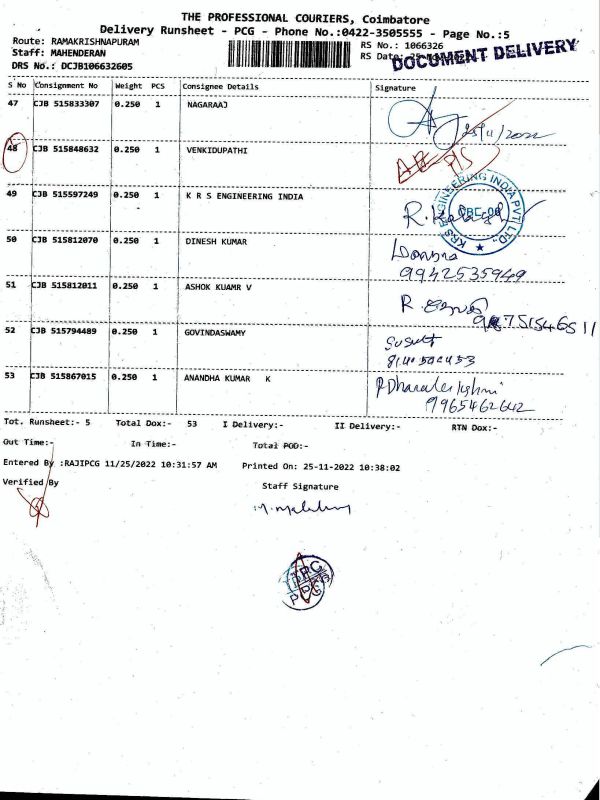 THE PROFESSIONAL COURIERS, Coimbatore
Delivery Runsheet - PCG - Phone No.:0422-3505555 - Page No.:5
Route: RAMAKRISHNAPURAM
RS No.: 1066326
Staff: MAHENDERAN
RS Date:
DOCUMENT DELIVERY
DRS No.: DCJB106632605
S No Consignment No Weight PCS Consignee Details Signature
47 CJB 515833307 0.250 1 NAGARAAJ
25/11/2022
48 CJB 515848632 0.250 1 VENKIDUPATHI
49 CJB 515597249 0.250 1 K R S ENGINEERING INDIA
KRS ENGINEERING INDIA PVT LTD.,
50 CJB 515812070 0.250 1 DINESH KUMAR
9942535969
51 CJB 515812011 0.250 1 ASHOK KUAMR V
52 CJB 515794489 0.250 1 GOVINDASWAMY
53 CJB 515867015 0.250 1 ANANDHA KUMAR K
9965462642
Tot. Runsheet:- 5 Total Dox:- 53 I Delivery:- II Delivery:- RTN Dox:-
Out Time:- In Time:- Total POD:-
Entered By :RAJIPCG 11/25/2022 10:31:57 AM Printed On: 25-11-2022 10:38:02
Verified By Staff Signature